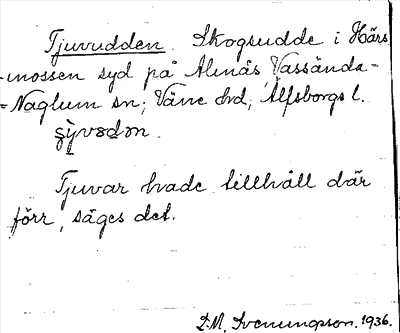 Tjuvudden. Skogsudde i Härs
-mossen syd på Almås Vassända-
=Naglum sn; Väne hd, Älfsborgs l.
Tjuvar hade tillhåll där
förr, säges det.
D.M. Svenungsson. 1936.